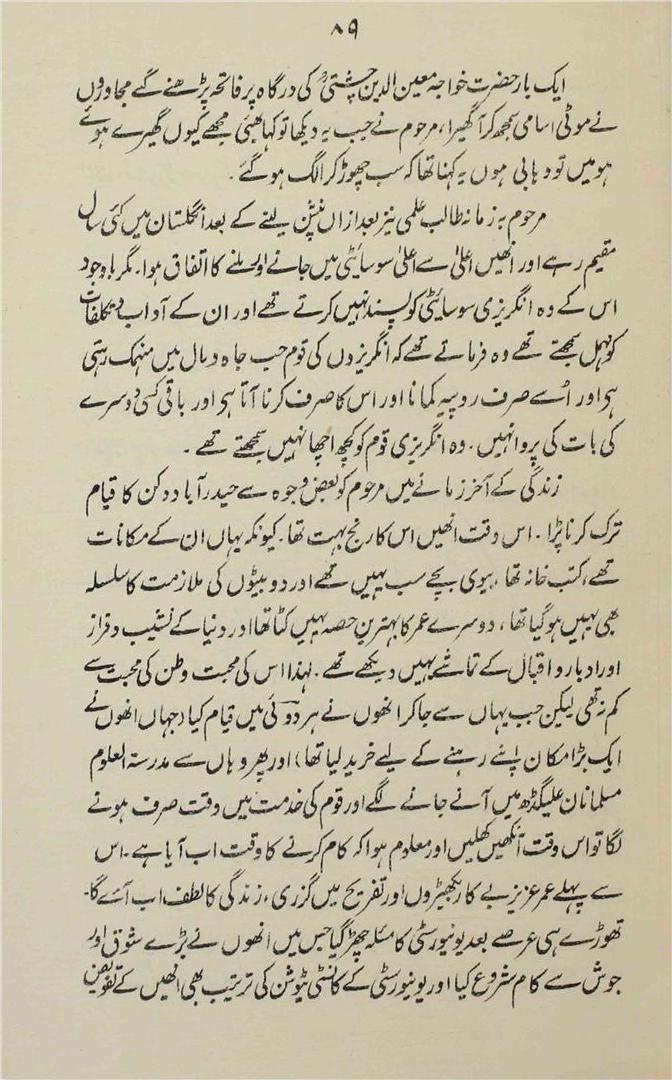 ۸۹
ایک بار حضرت خواجہ معین الدین چشتیؒ کی درگاہ پر فاتحہ پڑھنے گئے مجاوروں
نے موٹی اسامی سمجھ کر آ گھیرا، مرحوم نے جب یہ دیکھا تو کہا بھئی مجھے کیوں گھیرے ہوئے
ہو میں تو وہابی ہوں یہ کہنا تھا کہ سب چھوڑ کر الگ ہو گئے۔
مرحوم بہ زمانہ طالب علمی نیز بعد ازاں پنشن لینے کے بعد انگلستان میں کئی سال
مقیم رہے اور انھیں اعلیٰ سے اعلیٰ سوسائٹی میں جانے اور ملنے کا اتفاق ہوا۔ مگر باوجود
اس کے وہ انگریزی سوسائٹی کو پسند نہیں کرتے تھے اور ان کے آداب و تکلفات
کو مہمل سمجھتے تھے وہ فرماتے تھے کہ انگریزوں کی قوم حب جاہ و مال میں منہمک رہتی
ہی اور اُسے صرف روپیہ کمانا اور اس کا صرف کرنا آتا ہی اور باقی کسی دوسرے
کی بات کی پروا نہیں۔ وہ انگریزی قوم کو کچھ اچھا نہیں سمجھتے تھے۔
زندگی کے آخر زمانے میں مرحوم کو بعض وجوہ سے حیدرآباد دکن کا قیام
ترک کرنا پڑا۔ اس وقت انھیں اس کا رنج بہت تھا۔ کیونکہ یہاں ان کے مکانات
تھے، کتب خانہ تھا، بیوی بچے سب یہیں تھے اور دو بیٹوں کی ملازمت کا سلسلہ
بھی یہیں ہو گیا تھا، دوسرے عمر کا بہترین حصہ یہیں کٹا تھا اور دنیا کے نشیب و فراز
اور ادبار و اقبال کے تماشے یہیں دیکھے تھے۔ لہذا اس کی محبت وطن کی محبت سے
کم نہ تھی لیکن جب یہاں سے جا کر انھوں نے ہردوئی میں قیام کیا (جہاں انھوں نے
ایک بڑا مکان اپنے رہنے کے لیے خرید لیا تھا) اور پھر وہاں سے مدرستہ العلوم
مسلمانان علیگڈھ میں آنے جانے لگے اور قوم کی خدمت میں وقت صرف ہونے
لگا تو اس وقت آنکھیں کھلیں اور معلوم ہوا کہ کام کرنے کا وقت اب آیا ہے۔ اس
سے پہلے عمر عزیز بے کار بکھیڑوں اور تفریح میں گزری، زندگی کا لطف اب آئے گا۔
تھوڑے ہی عرصے بعد یونیورسٹی کا مسئلہ چھڑ گیا جس میں انھوں نے بڑے شوق اور
جوش سے کام شروع کیا اور یونیورسٹی کے کانسٹی ٹیوشن کی ترتیب بھی انھیں کے تفویض